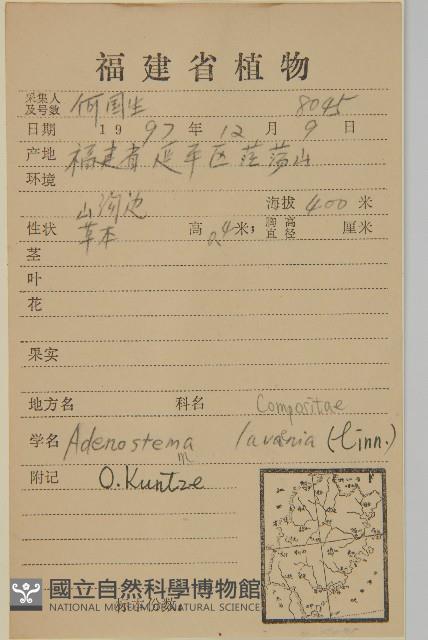 福建省植物
采集人及号数 何国生 8045
日期 1997年12月9日
产地 福建省延平区茫荡山
环境
山沟边 海拔 400 米
性状 草本 高 0.4 米; 胸高直径 厘米
茎
叶
花
果实
地方名 科名 Compositae
学名 Adenostema lavania (Linn.)
m
附记 O. Kuntze
國立自然科學博物館
NATIONAL MUSEUM OF NATURAL SCIENCE